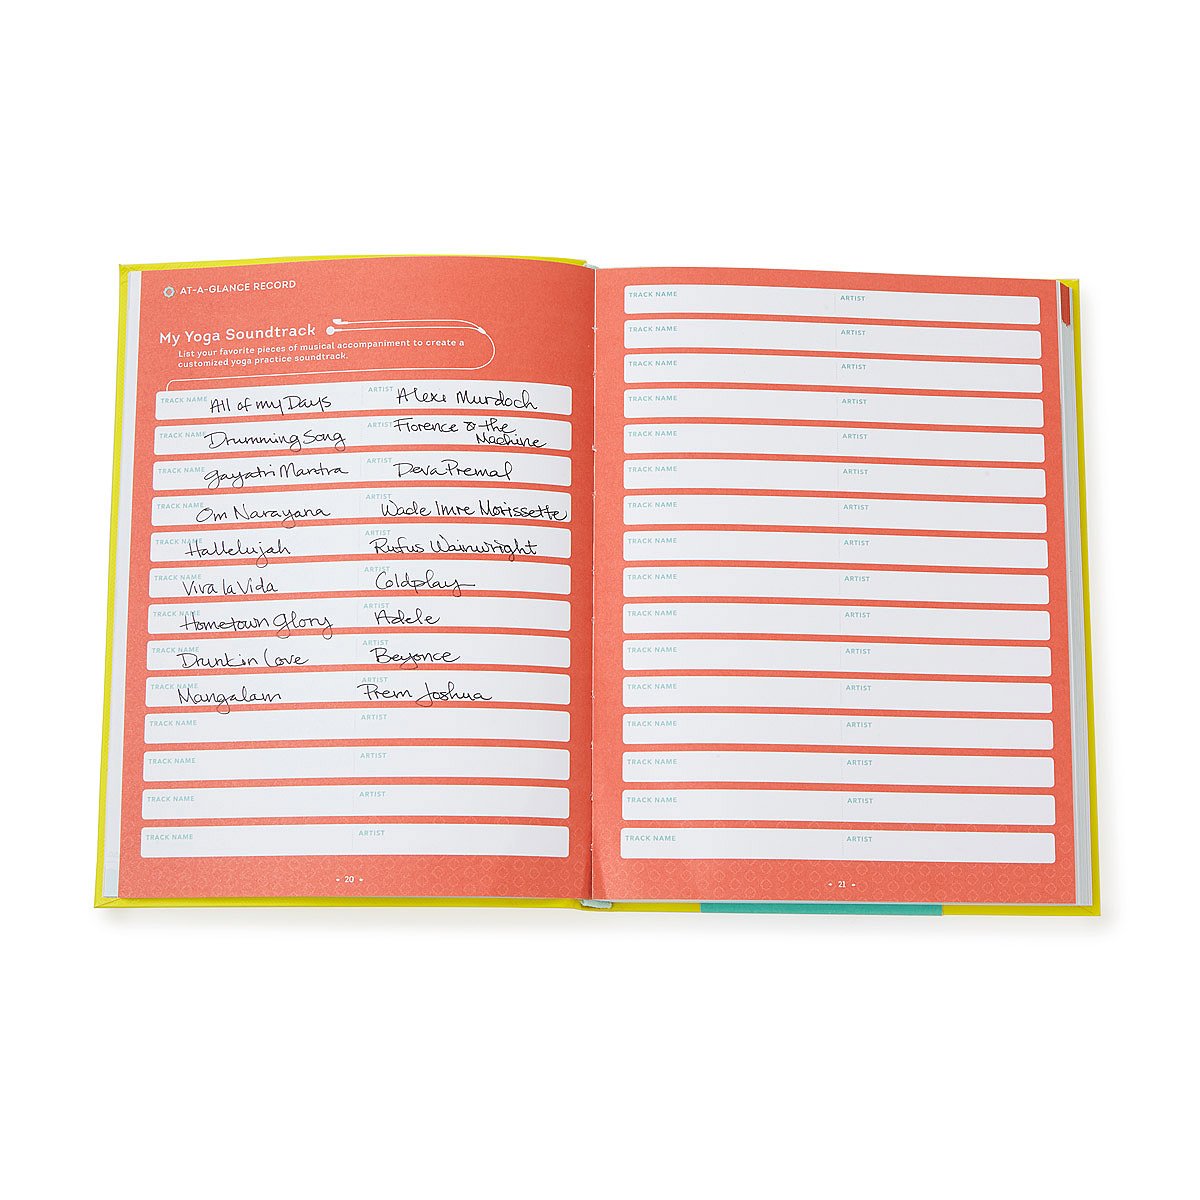 AT-A-GLANCE RECORD
My Yoga Soundtrack
List your favorite pieces of musical accompaniment to create a
customized yoga practice soundtrack.
TRACK NAME All of my Days ARTIST Alexi Murdoch
TRACK NAME Drumming Song ARTIST Florence & the
Machine
TRACK NAME Gayatri Mantra ARTIST Deva Premal
TRACK NAME Om Narayana ARTIST Wade Imre Morissette
TRACK NAME Hallelujah ARTIST Rufus Wainwright
TRACK NAME Viva la Vida ARTIST Coldplay
TRACK NAME Hometown Glory ARTIST Adele
TRACK NAME Drunk in Love ARTIST Beyonce
TRACK NAME Mangalam ARTIST Prem Joshua
TRACK NAME ARTIST
TRACK NAME ARTIST
TRACK NAME ARTIST
TRACK NAME ARTIST
20
TRACK NAME ARTIST
TRACK NAME ARTIST
TRACK NAME ARTIST
TRACK NAME ARTIST
TRACK NAME ARTIST
TRACK NAME ARTIST
TRACK NAME ARTIST
TRACK NAME ARTIST
TRACK NAME ARTIST
TRACK NAME ARTIST
TRACK NAME ARTIST
TRACK NAME ARTIST
TRACK NAME ARTIST
TRACK NAME ARTIST
TRACK NAME ARTIST
TRACK NAME ARTIST
21